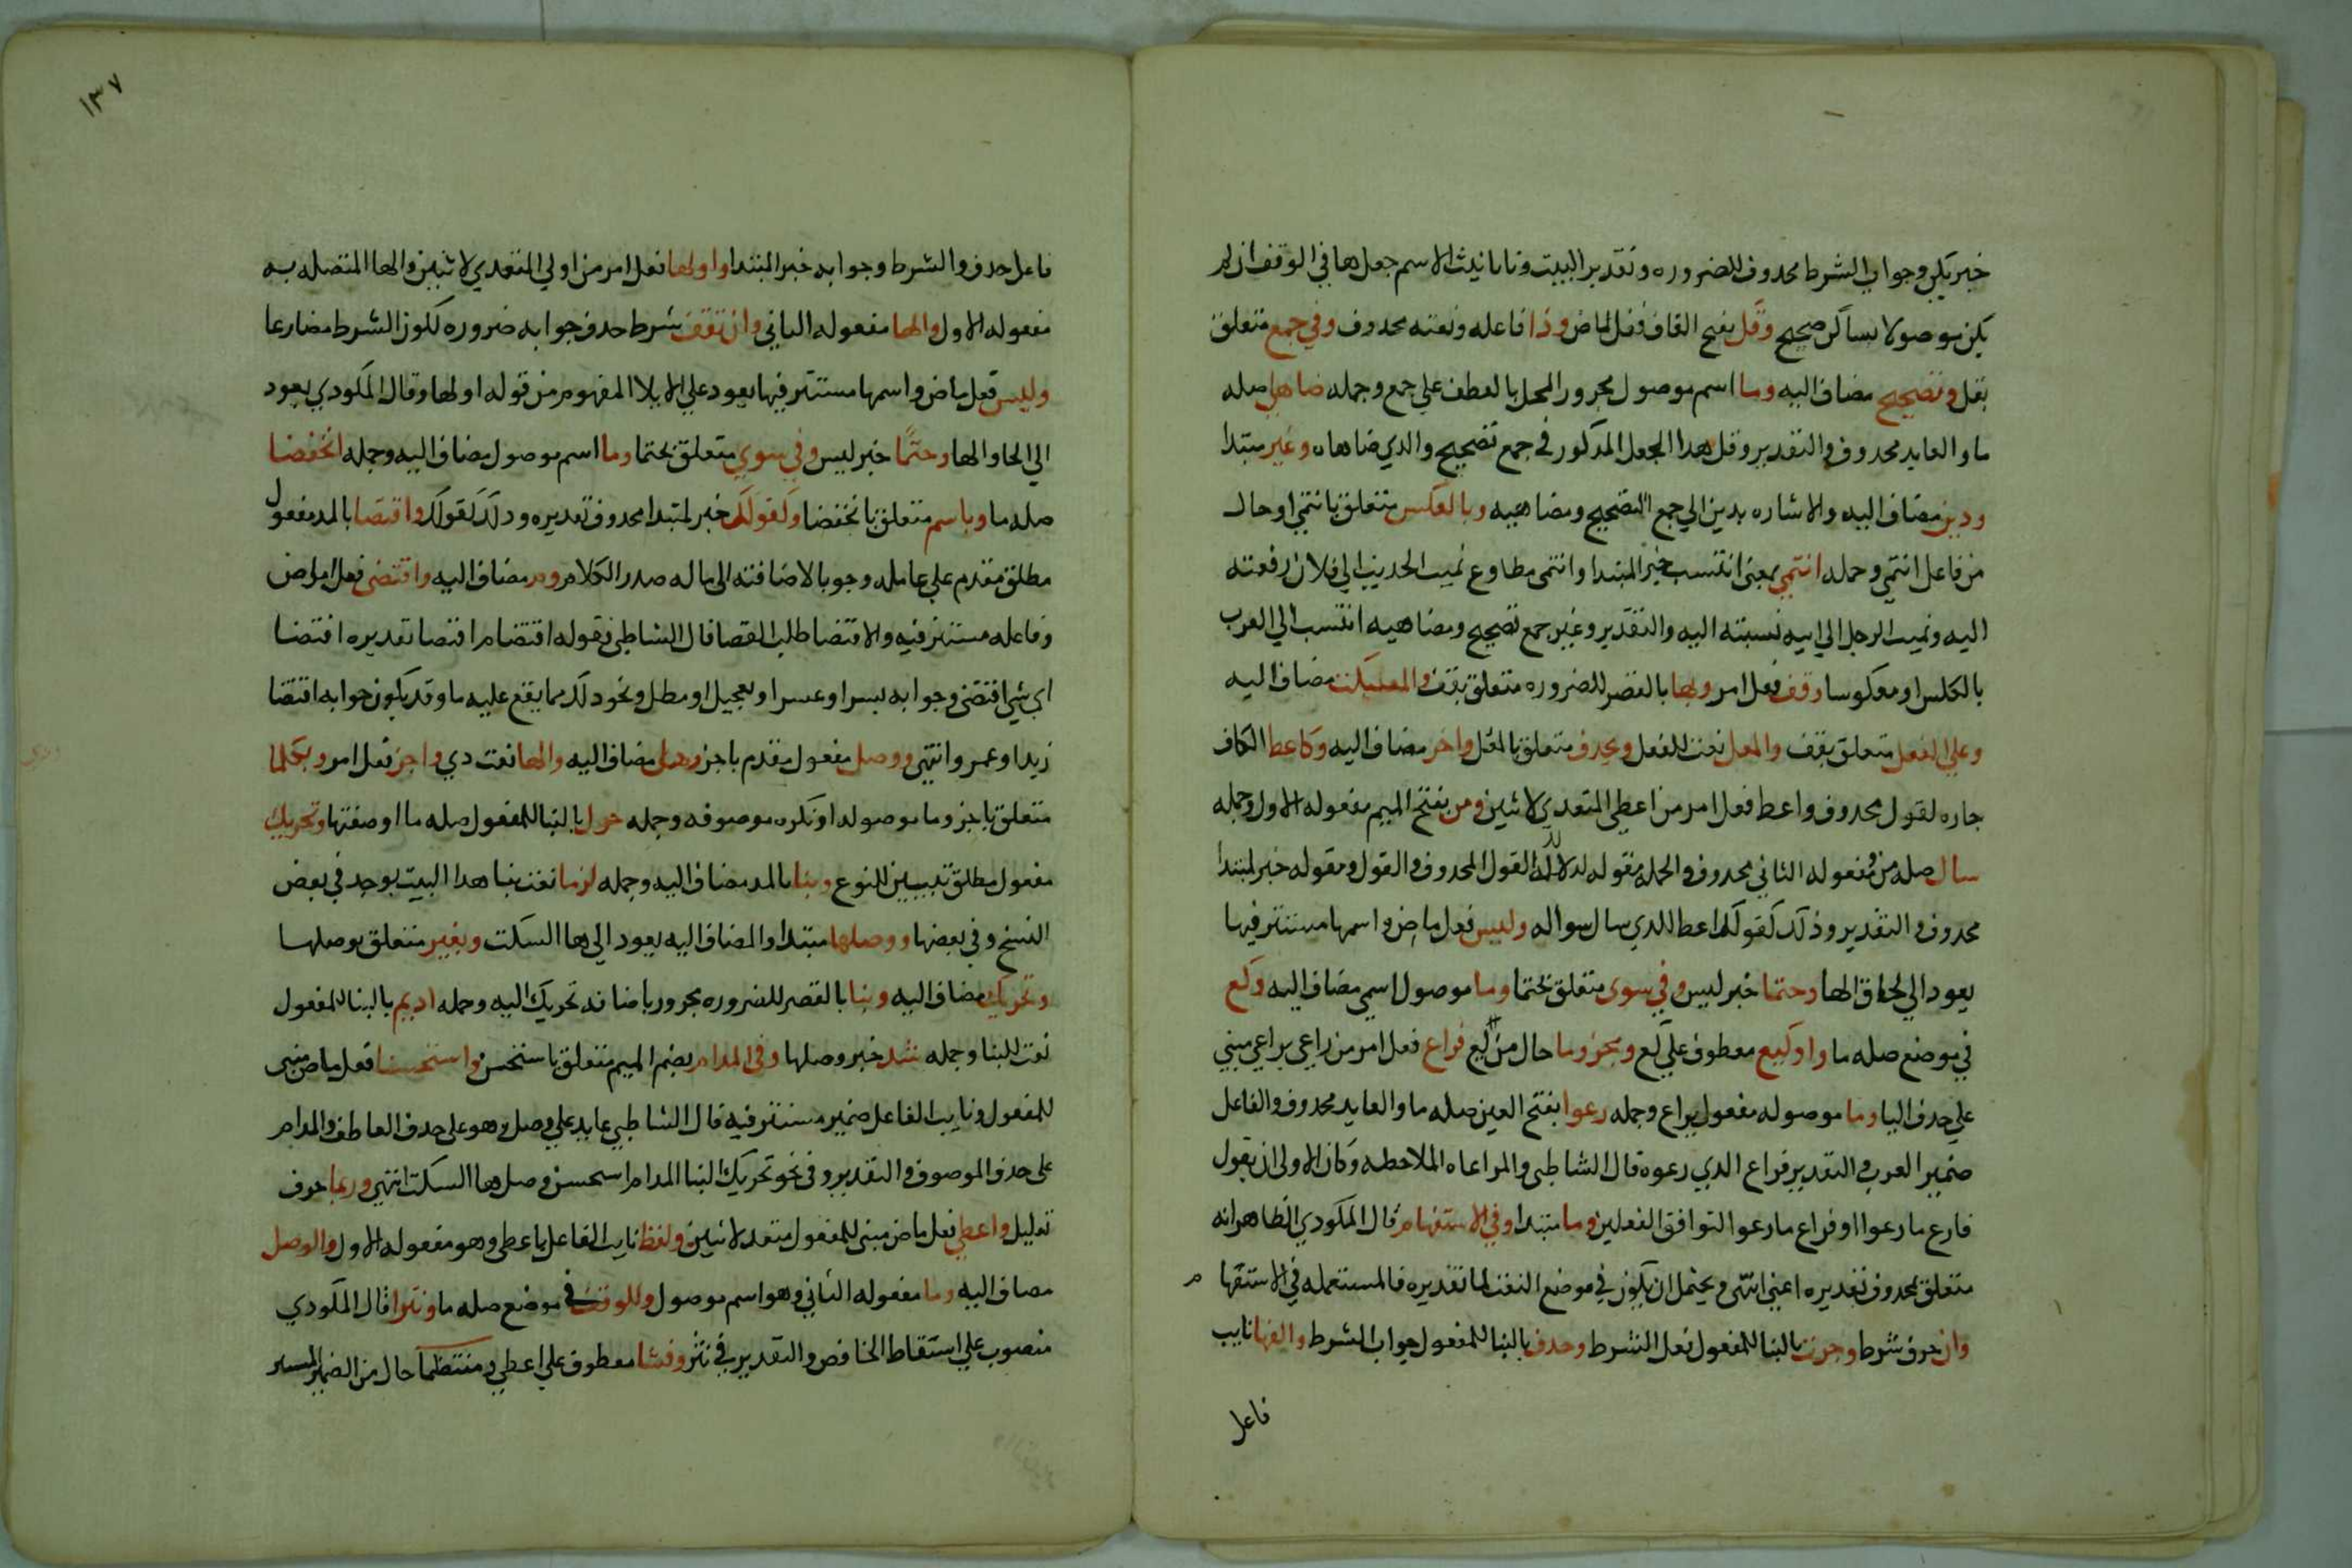 خبر يكن وجواب الشرط محدوف للضروره وتقدير البيت وتا تانيث الاسم جعل ها في الوقف ان لم
يكن موصولا بساكن صحيح وقل بفتح القاف فعل ماض وذا فاعله ونعته محدوف وفي جمع متعلق
بقل وتصحيح مضاف اليه وما اسم موصول مجرور المحل بالعطف علي جمع وجمله ضاهي صله
ما والعايد محدوف والتقدير وقل هدا الجعل المدكور في جمع تصحيح والدي ضاهاه وغير مبتدا
ودين مضاف اليه والاشاره بدين الي جمع التصحيح ومضاهيه وبالعكس متعلق بانتمي او حال
من فاعل انتمي وجمله انتمي بمعني انتسب خبر المبتدا وانتمي مطاوع نميت الحديث الي فلان رفعته
اليه ونميت الرجل الي ابيه نسبته اليه والتقدير وغير جمع تصحيح ومضاهيه انتسب الي العرب
بالعكس او معكوسا وقف فعل امر وبها بالقصر للضروره متعلق بقف والسكت مضاف اليه
وعلي الفعل متعلق بقف والمعل نعت للفعل وبحدف متعلق بالمعل واخر مضاف اليه وكاعط الكاف
جاره لقول محدوف واعط فعل امر من اعطي المتعدي لاثنين ومن بفتح الميم مفعوله الاول وجمله
سال صله من ومفعوله الثاني محدوف والجمله مقوله لدلك القول المحدوف والقول ومقوله خبر لمبتدا
محدوف والتقدير وذلك كقولك اعط للدي سال سواله وليس فعل ماض واسمها مستتر فيها
يعود الي لحاق الها وحتما خبر ليس وفي سوى متعلق بحتما وما موصول اسمي مضاف اليه وكع
في موضع صله ما واو كيع معطوف علي كع ومجزوما حال من كيع فراع فعل امر من راعي يراعي مبني
علي حدف اليا وما موصوله مفعول براع وجمله رعوا بفتح العين صله ما والعايد محدوف والفاعل
ضمير العرب والتقدير فراع الدي رعوه قال الشاطبي والمراعاه الملاحظه وكان الاولي ان يقول
فارع ما رعوا او فراع ما رعوا لتوافق الفعلين وما مبتدا وفي الاستفهام قال المكودي الظاهر انه
متعلق بمحدوف تقديره اعني انتهي ويحتمل ان يكون في موضع النعت لما تقديره فالمستعمله في الاستفها م
وان حرف شرط وجرت بالبنا للمفعول فعل الشرط وحدف بالبنا للمفعول جواب الشرط والفها نايب
فاعل
١٣٧
فاعل حدف والشرط وجوابه خبر المبتدا واولها فعل امر من اولي المتعدي لاثنين والها المتصله به
مفعوله الاول والها مفعوله الثاني وان تقف شرط حدف جوابه ضروره لكون الشرط مضارعا
وليس فعل ماض واسمها مستتر فيها يعود علي الايلا المفهوم من قوله اولها وقال المكودي يعود
الي الحاق الها وحتما خبر ليس وفي سوي متعلق بحتما وما اسم موصول مضاف اليه وجمله انخفضا
صله ما وباسم متعلق بانخفضا وكقولك خبر لمبتدا محدوف تقديره ودلك كقولك واقتضا بالمد مفعول
مطلق مقدم علي عامله وجوبا لاضافته الي ما له صدر الكلام وم مضاف اليه واقتضى فعل ماض
وفاعله مستتر فيه والاقتضا طلب القضا قال الشاطبي فقوله اقتضا م اقتضا تقديره اقتضا
اي شي اقتضي وجوابه يسرا وعسرا وتعجيل او مطل ونحو دلك مما يقع عليه ما وقد يكون جوابه اقتضا
زيد او عمرو انتهي ووصل مفعول مقدم باجز وهدي مضاف اليه والها نعت دي واجز فعل امر وبكلما
متعلق باجز وما موصوله او نكره موصوفه وجمله حرك بالبنا للمفعول صله ما او صفتها وتحريك
مفعول مطلق تبيين للنوع وبنا بالمد مضاف اليه وجمله لزما نعت بنا هدا البيت يوجد في بعض
النسخ وفي بعضها ووصلها مبتدا والمضاف اليه يعود الي ها السكت وبغير متعلق بوصلها
وتحريك مضاف اليه وبنا بالقصر للضروره مجرور باضافة تحريك اليه وجمله اديم بالبنا للمفعول
نعت للبنا وجمله شد خبر وصلها وفي المدام بضم الميم متعلق باستحسن واستحسنا فعل ماض مبني
للمفعول ونايب الفاعل ضمير مستتر فيه قال الشاطبي عايد علي وصل وهو علي حدف العاطف والمدام
على حدف الموصوف والتقدير وفي نحو تحريك البنا المدام استحسن وصل ها السكت انتهي وربما حرف
تقليل واعطي فعل ماض مبني للمفعول متعد لاثنين ولفظ نايب الفاعل باعطي وهو مفعوله الاول والوصل
مضاف اليه وما مفعوله الثاني وهو اسم موصول وللوقف في موضع صله ما ونثرا قال المكودي
منصوب علي اسقاط الخافض والتقدير في نثر وفشا معطوف علي اعطي ومنتظما حال من الضمير المستتر